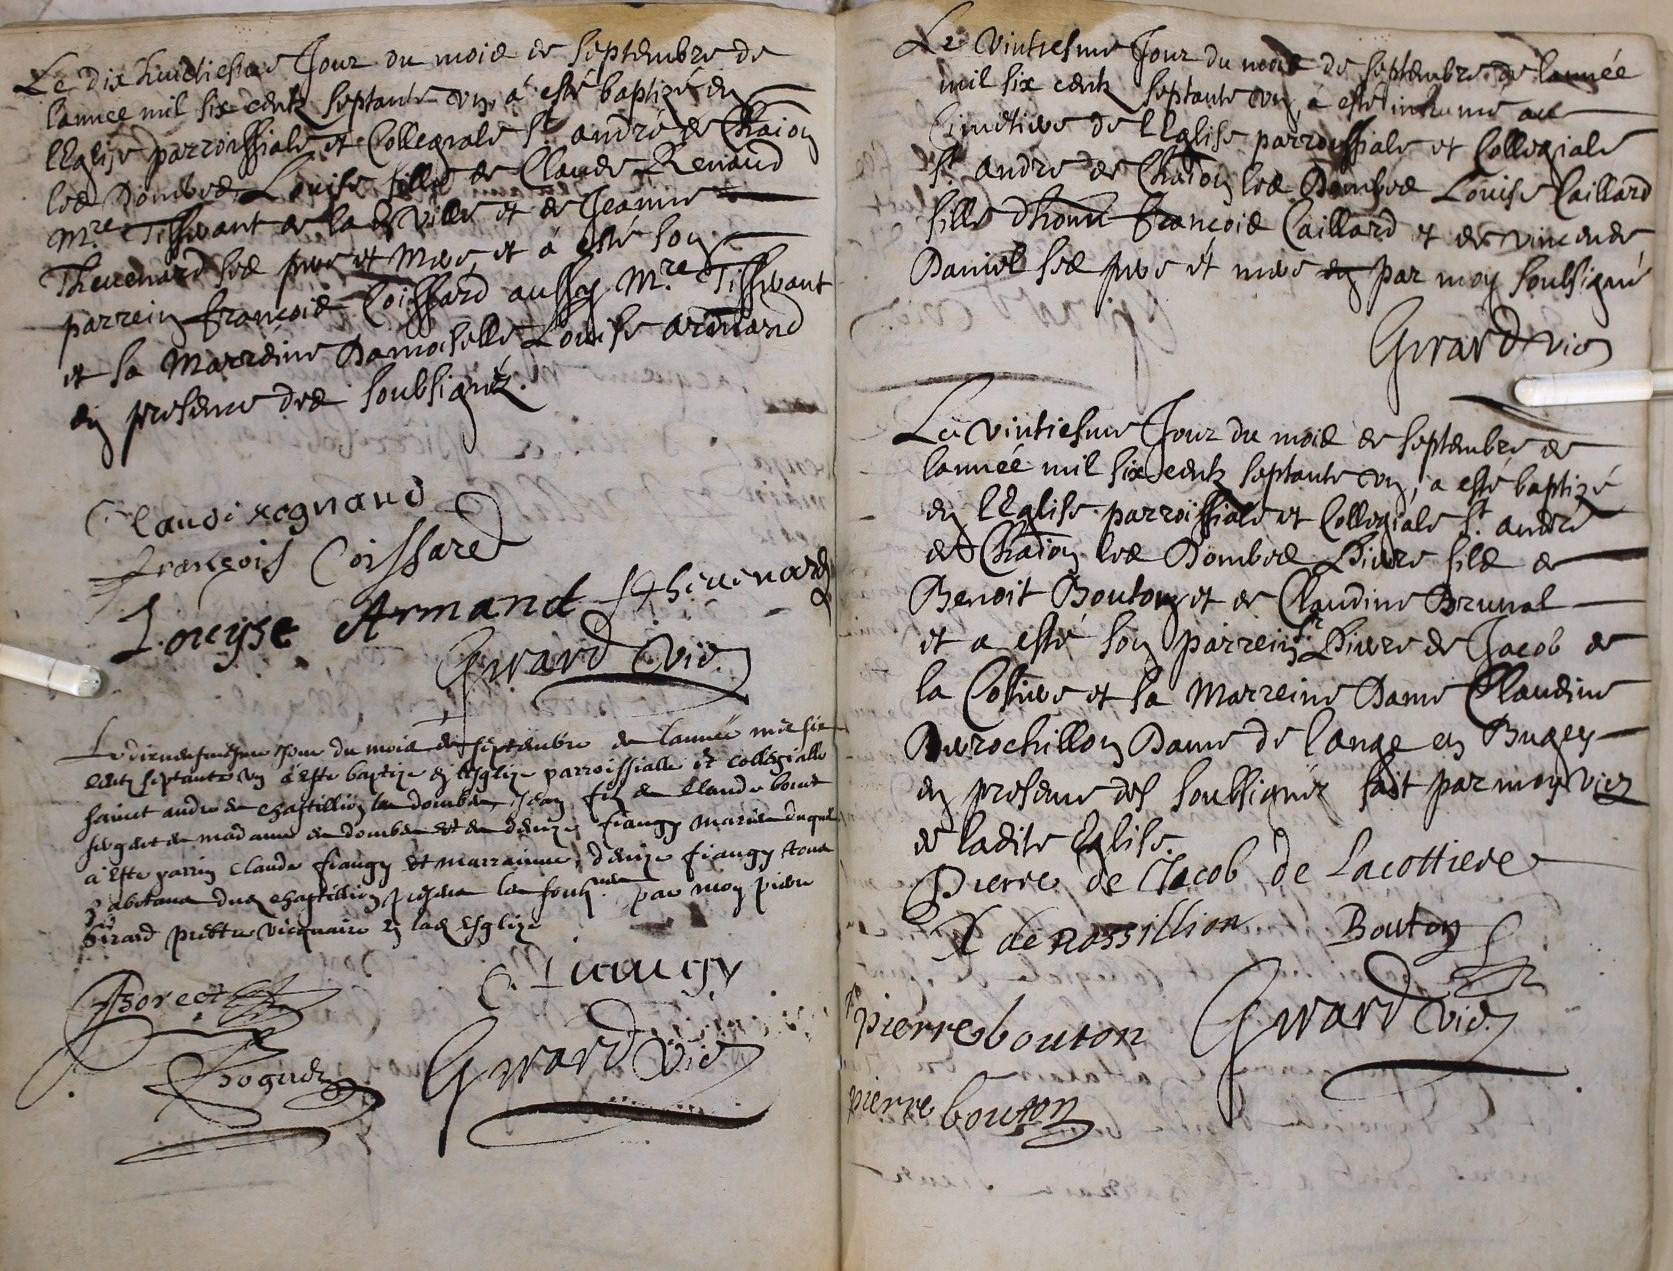 Le dix huictiesme Jour du mois de septembre de
lannee mil six centz septante un, à esté baptizé en
lEglise parroissiale et Collegiale St. andré de Chaion
les Dombes Louise fille de Claude Renaud
Mre. Tisserant de lad. Ville et de Jeanne
Thevenard ses pere et Mere et à esté son
parrein françois Coissard aussy Mre. Tisserant
et sa Marreine Damoiselle Louise armand
en presence des soubsignéz.
Claude regnaud
françois Coissard
Louyse Armand J thevenard
Girard vic.
Le dixneufviesme Jour du mois de septembre de lannée mil six
centz septante un à Este baptize en lEglize parroissialle et collegialle
sainct andre de chastillion les dombes, Jean fiz de Claude boret
sergent de madame de dombes et de denize fiaugy mariés duquel
à Este parrin Claude fiaugy et marrainne, denize fiaugy tous
habitans dud chastillion par moy pierre
Girard prettre vicquaire en lad Esglize
Boret
C. fiaugy
Girard vic
Le Vintiesme Jour du mois de septembre de lannée
mil six centz septante un, a esté inhumé au
Cimetiere de lEglise parroissiale et Collegiale
St. andre de Chaion les Dombes Louise Caillard
fille dhonn. françois Caillard et de vincende
Daniel ses pere et mere par moy soubsigné
Girard vic
Le vintiesme Jour du mois de septembre de
lanneé mil six centz septante un, a esté baptizé
en lEglise parroissiale et Collegiale St. andré
de Chaion les Dombes Pierre filz de
Benoit Bouton et de Claudine Brunal
et a esté son parrein Sr. Pierre de Jacob de
la Cottiere et sa Marreine Dame Claudine
Derochillon Dame de lange en Bugey
en presence des soubsignéz fait par moy vicz
de ladite Eglise.
Pierre de Jacob de Lacottiere
de Rossillion Bouton
pierre bouton Girard vic.
pierre bouton